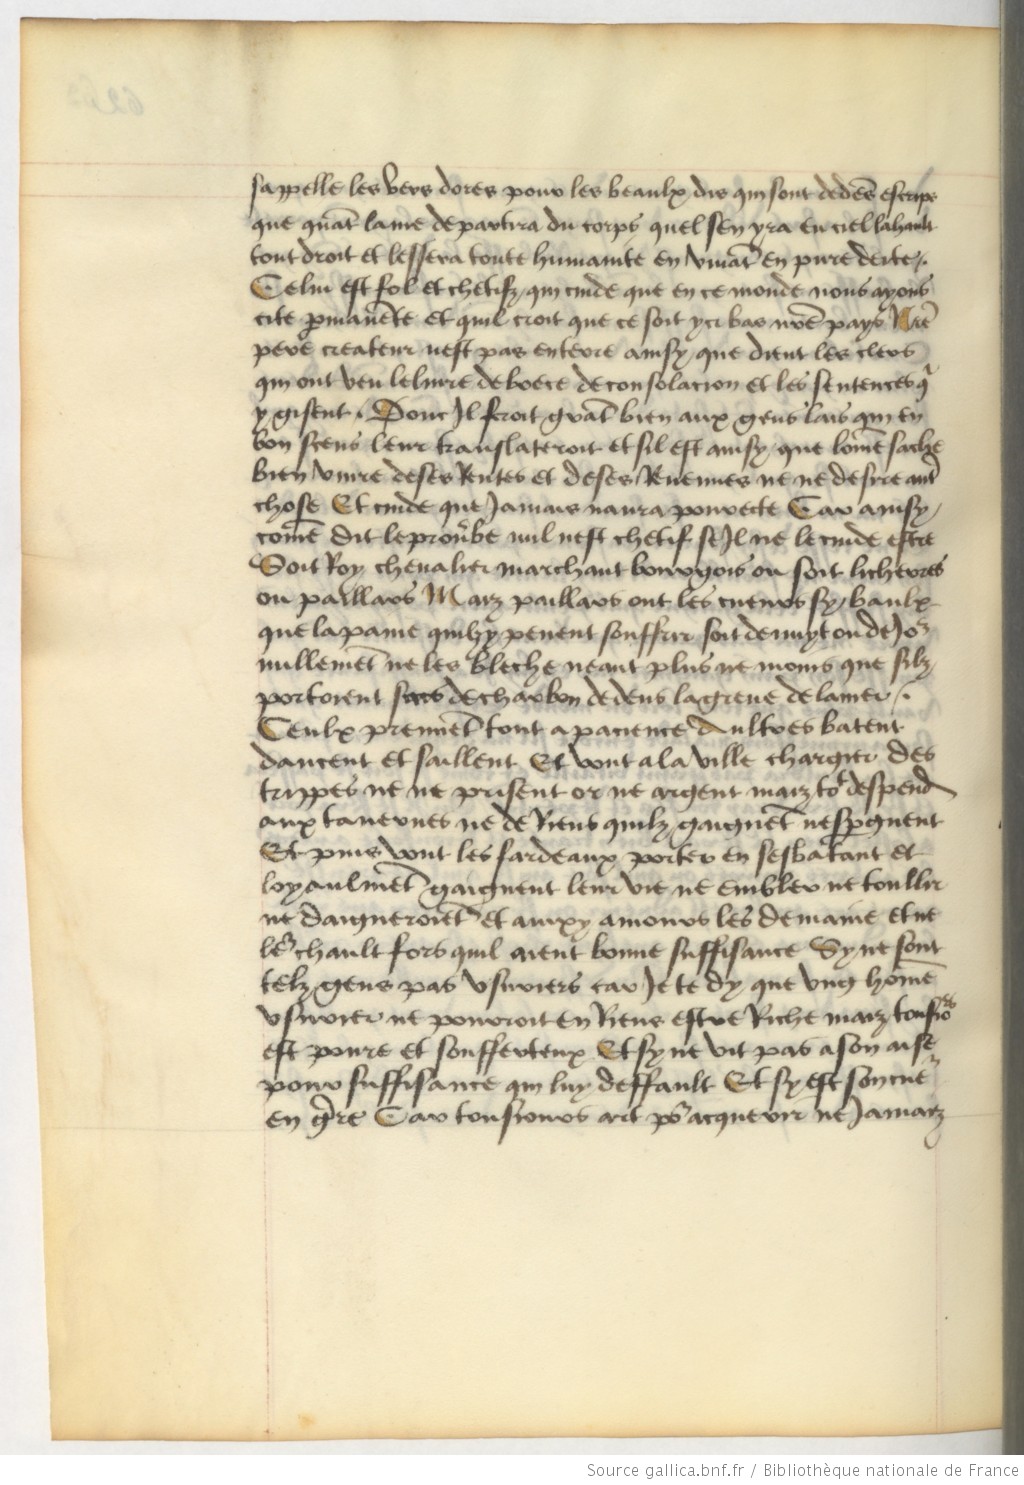 sappelle les vers dores pour les beaulx dis qui sont dedes escrips
que quat lame departira du corps quel sen yra en ciel lahault
tout droit et lessera toute humanite en vivat en pure deite /.
Celui est fol et chetifz qui cuide que en ce monde nous ayons
cite pmanete et quil croit que ce soit ycy bas nre pays Nre
pere createur nest pas en terre ainsy que dient les clers
qui ont veu le livre de boece de consolacion et les sentences q
y gisent . Donc Il feroit grat bien aux gens lais qui en
bon scens leur translateroit et sil est ainsy que lome sache
bien vivre de ses Rentes et de ses Revenues ne ne desire autr
chose Et cuide que Jamais naura povrete Car ainsy
come dit le proverbe nul nest chetif se Il ne le cuide estre
Soit Roy chevalier marchant bourgois ou soit licheres
ou paillars Maiz paillars ont les cueurs sy baulx
que la paine quilz y pevent souffrir soit de nuyt ou de Jo
nullemet ne les bleche neant plus ne moins que silz
portoient sacs de charbon dedens la greve de la mer /.
Ceulx prennet tout a pacience Aultres batent
dancent et saillent Et vont a la ville chargier des
trippes ne ne prisent or ne argent maiz to despend
aux tavernes ne de Riens quilz gaignet nespgnent
Et puis vont les fardeaux porter en sesbatant et
loyaulmet gaignent leur vie ne embler ne toullir
ne daigneroiet et auxy amours les demaine et ne
le chault fors quil aient bonne suffisance Sy ne sont
telz gens pas usuriers car Je te dy que ung home
usurier ne pouroit en Riens estre Riche maiz tousio
est povre et souffreteux Et sy ne vit pas a son aise
pour suffisance qui luy deffault Et sy est son cue
en gre Car tousiours art po acquerir ne Jamaiz
Source gallica.bnf.fr / Bibliothèque nationale de France